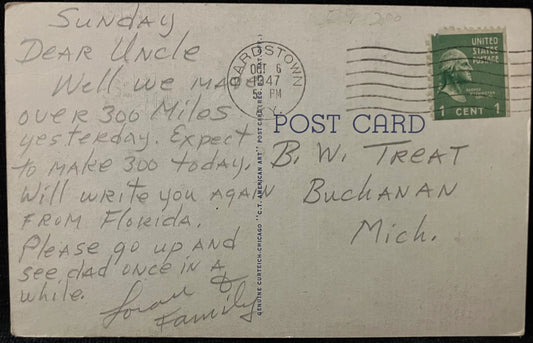 Sunday
Dear Uncle
Well we made
over 300 Miles
yesterday. Expect
to make 300 today.
Will write you again
From Florida.
Please go up and
see dad once in a
while.
&
Family
BARDSTOWN
OCT 6
1947
5 PM
KY.
UNITED
STATES
POSTAGE
1 CENT 1
POST CARD
B. W. Treat
Buchanan
Mich.
GENUINE CURTEICH-CHICAGO "C.T. AMERICAN ART" POST CARD (REG. U.S. PAT. OFF.)